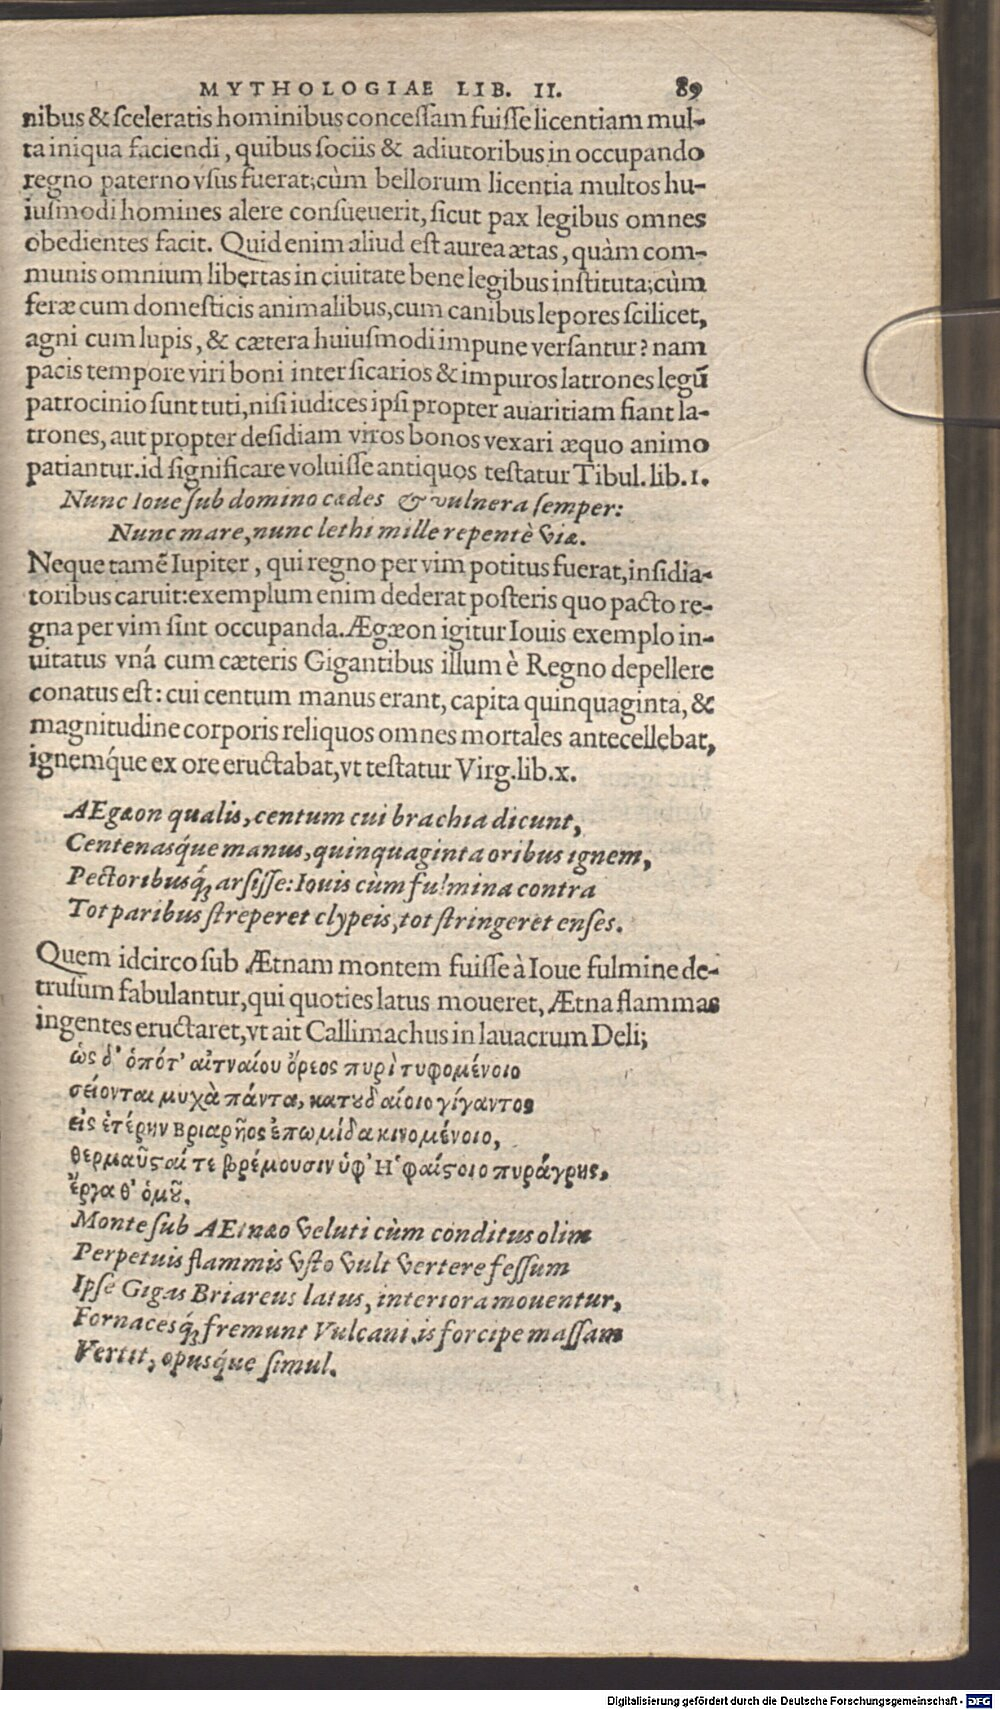 MYTHOLOGIAE LIB. II. 89
nibus & ſceleratis hominibus conceſſam fuiſſe licentiam mul-
ta iniqua faciendi, quibus ſociis & adiutoribus in occupando
regno paterno vſus fuerat; cùm bellorum licentia multos hu-
iuſmodi homines alere conſueuerit, ſicut pax legibus omnes
obedientes facit. Quid enim aliud eſt aurea ætas, quàm com-
munis omnium libertas in ciuitate bene legibus inſtituta; cùm
feræ cum domeſticis animalibus, cum canibus lepores ſcilicet,
agni cum lupis, & cætera huiuſmodi impune verſantur? nam
pacis tempore viri boni inter ſicarios & impuros latrones legū
patrocinio ſunt tuti, niſi iudices ipſi propter auaritiam fiant la-
trones, aut propter deſidiam viros bonos vexari æquo animo
patiantur. id ſignificare voluiſſe antiquos teſtatur Tibul. lib. 1.
Nunc Ioue ſub domino cædes & vulnera ſemper:
Nunc mare, nunc lethi mille repentè viæ.
Neque tamē Iupiter, qui regno per vim potitus fuerat, inſidia-
toribus caruit: exemplum enim dederat poſteris quo pacto re-
gna per vim ſint occupanda. Ægæon igitur Iouis exemplo in-
uitatus vná cum cæteris Gigantibus illum è Regno depellere
conatus eſt: cui centum manus erant, capita quinquaginta, &
magnitudine corporis reliquos omnes mortales antecellebat,
ignemq́ue ex ore eructabat, vt teſtatur Virg. lib. x.
AEgæon qualis, centum cui brachia dicunt,
Centenasq́ue manus, quinquaginta oribus ignem,
Pectoribusq́; arſiſſe: Iouis cùm fulmina contra
Tot paribus ſtreperet clypeis, tot ſtringeret enſes.
Quem idcirco ſub Ætnam montem fuiſſe à Ioue fulmine de-
truſum fabulantur, qui quoties latus moueret, Ætna flammas
ingentes eructaret, vt ait Callimachus in lauacrum Deli;
ὡς δ' ὁπότ' αἰτναίου ὄρεος πυρὶ τυφομένοιο
σείονται μυχὰ πάντα, κατουδαίοιο γίγαντος
εἰς ἑτέρην βριαρῆος ἐπωμίδα κινομένοιο,
θερμαῦςαί τε βρέμουσιν ὑφ' Ἡφαίςοιο πυράγρης,
ἔργα θ' ὁμοῦ.
Monte ſub AEtnæo veluti cùm conditus olim
Perpetuis flammis vſto vult vertere feſſum
Ipſe Gigas Briareus latus, interiora mouentur,
Fornacesq́; fremunt Vulcani, is forcipe maſſam
Vertit, opusq́ue ſimul.
Digitalisierung gefördert durch die Deutsche Forschungsgemeinschaft - DFG